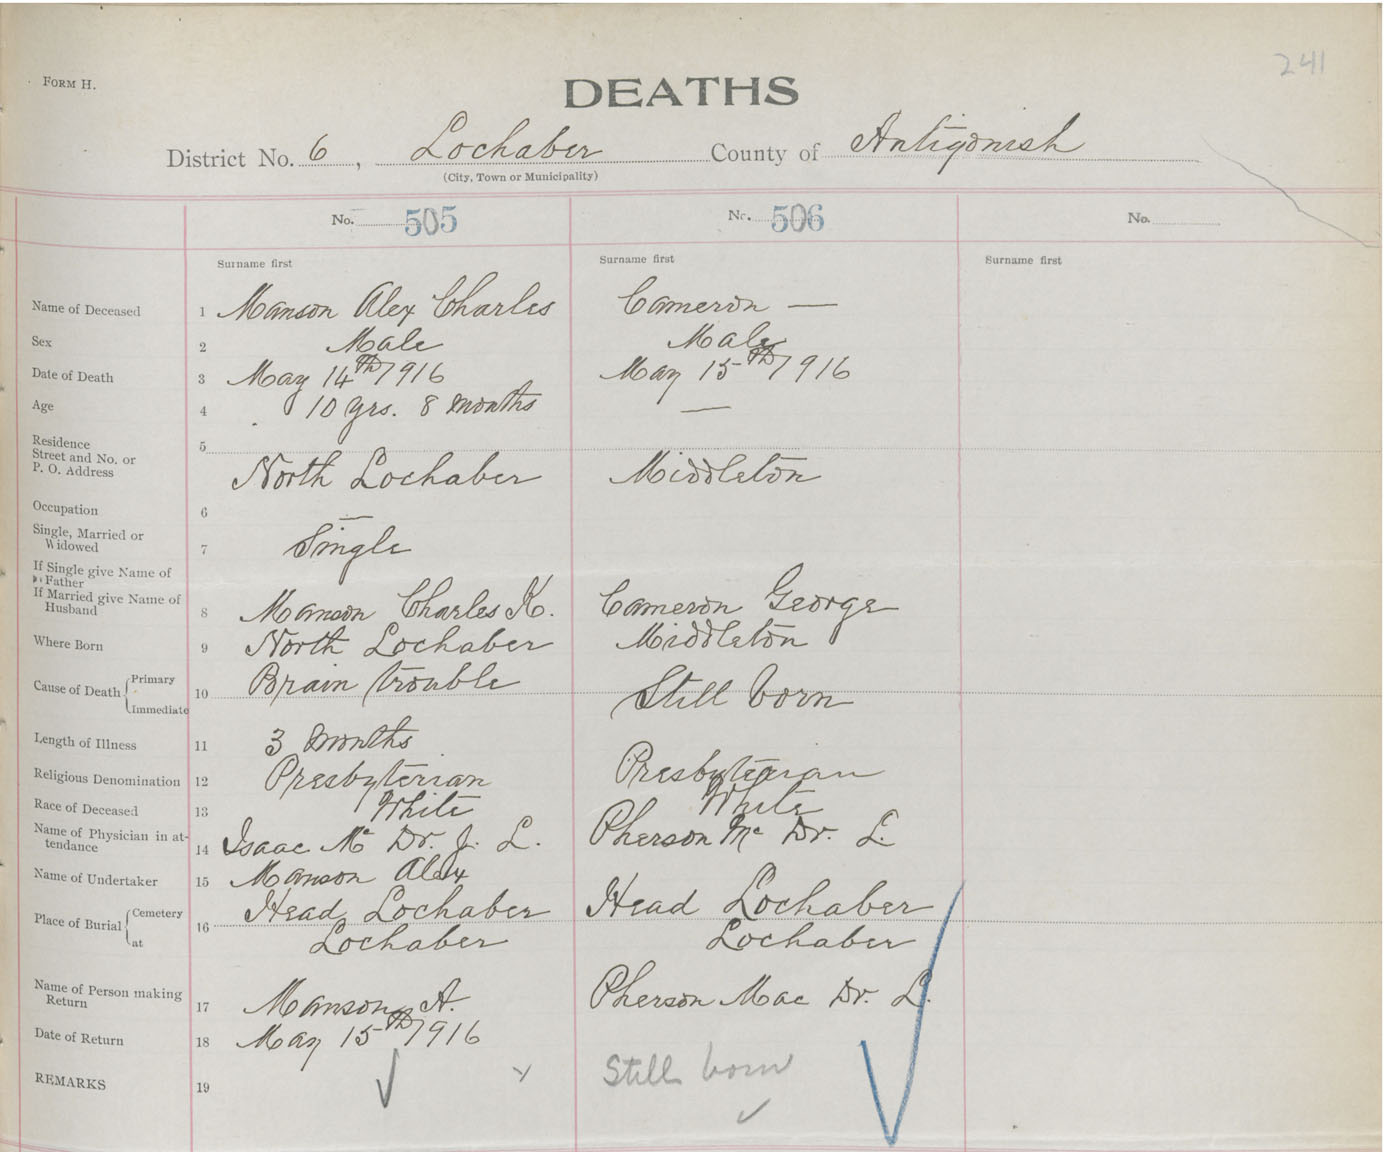 241
FORM H.
DEATHS
District No. 6, Lochaber County of Antigonish
(City, Town or Municipality)
No. 505 No. 506 No.
Surname first Surname first Surname first
Name of Deceased 1 Manson Alex Charles Cameron —
Sex 2 Male Male
Date of Death 3 May 14th 1916 May 15th 1916
Age 4 10 yrs. 8 months —
Residence
Street and No. or
P. O. Address 5 North Lochaber Middleton
Occupation 6 —
Single, Married or
Widowed 7 Single
If Single give Name of
Father
If Married give Name of
Husband 8 Manson Charles K. Cameron George
Where Born 9 North Lochaber Middleton
Cause of Death { Primary
Immediate 10 Brain trouble Still born
Length of Illness 11 3 months
Religious Denomination 12 Presbyterian Presbyterian
Race of Deceased 13 White White
Name of Physician in at-
tendance 14 Isaac Mc Dr. J. L. Pherson Mc Dr. L.
Name of Undertaker 15 Manson Alex
Place of Burial { Cemetery 16 Head Lochaber Head Lochaber
at Lochaber Lochaber
Name of Person making
Return 17 Manson A. Pherson Mac Dr. L.
Date of Return 18 May 15th 1916
REMARKS 19 Still born